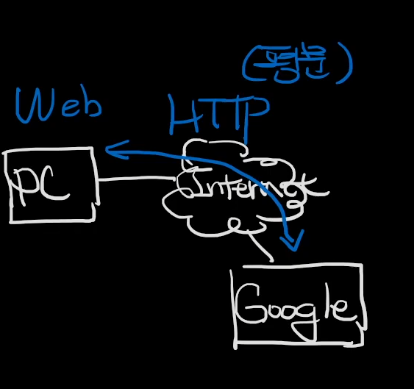 (평문)
Web HTTP
PC
Internet
Google